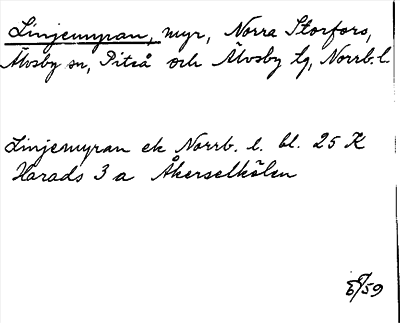 Linjemyran, myr, Norra Storfors,
Älvsby sn, Piteå och Älvsby tg, Norrb. l.
Linjemyran ek Norrb. l. bl. 25 K
Harads 3 a Åkerselkölen
/59